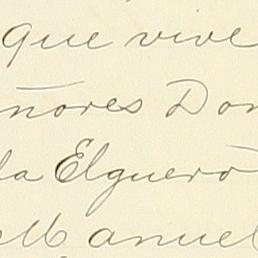 que vive
ñores Don
la Elguero
Manuel